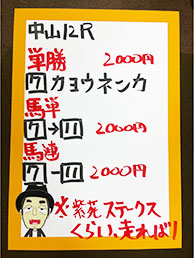 中山12R
単勝 2000円
7 カヨウネンカ
馬単
7→11 2000円
馬連
7-11 2000円
※紫苑ステークス
くらい、走れば!